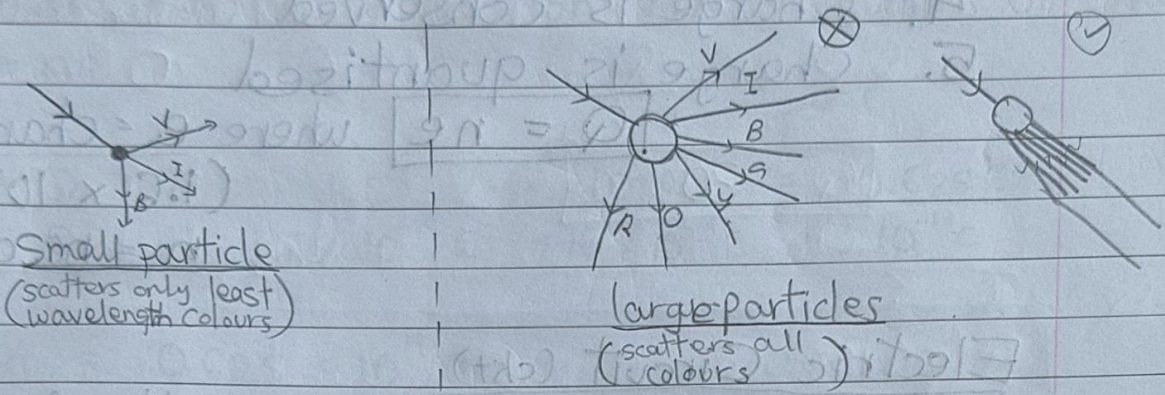 V
I
B
Small particle
(scatters only least
wavelength colours)
V
I
B
G
Y
O
R
large particles
(scatters all
colours)